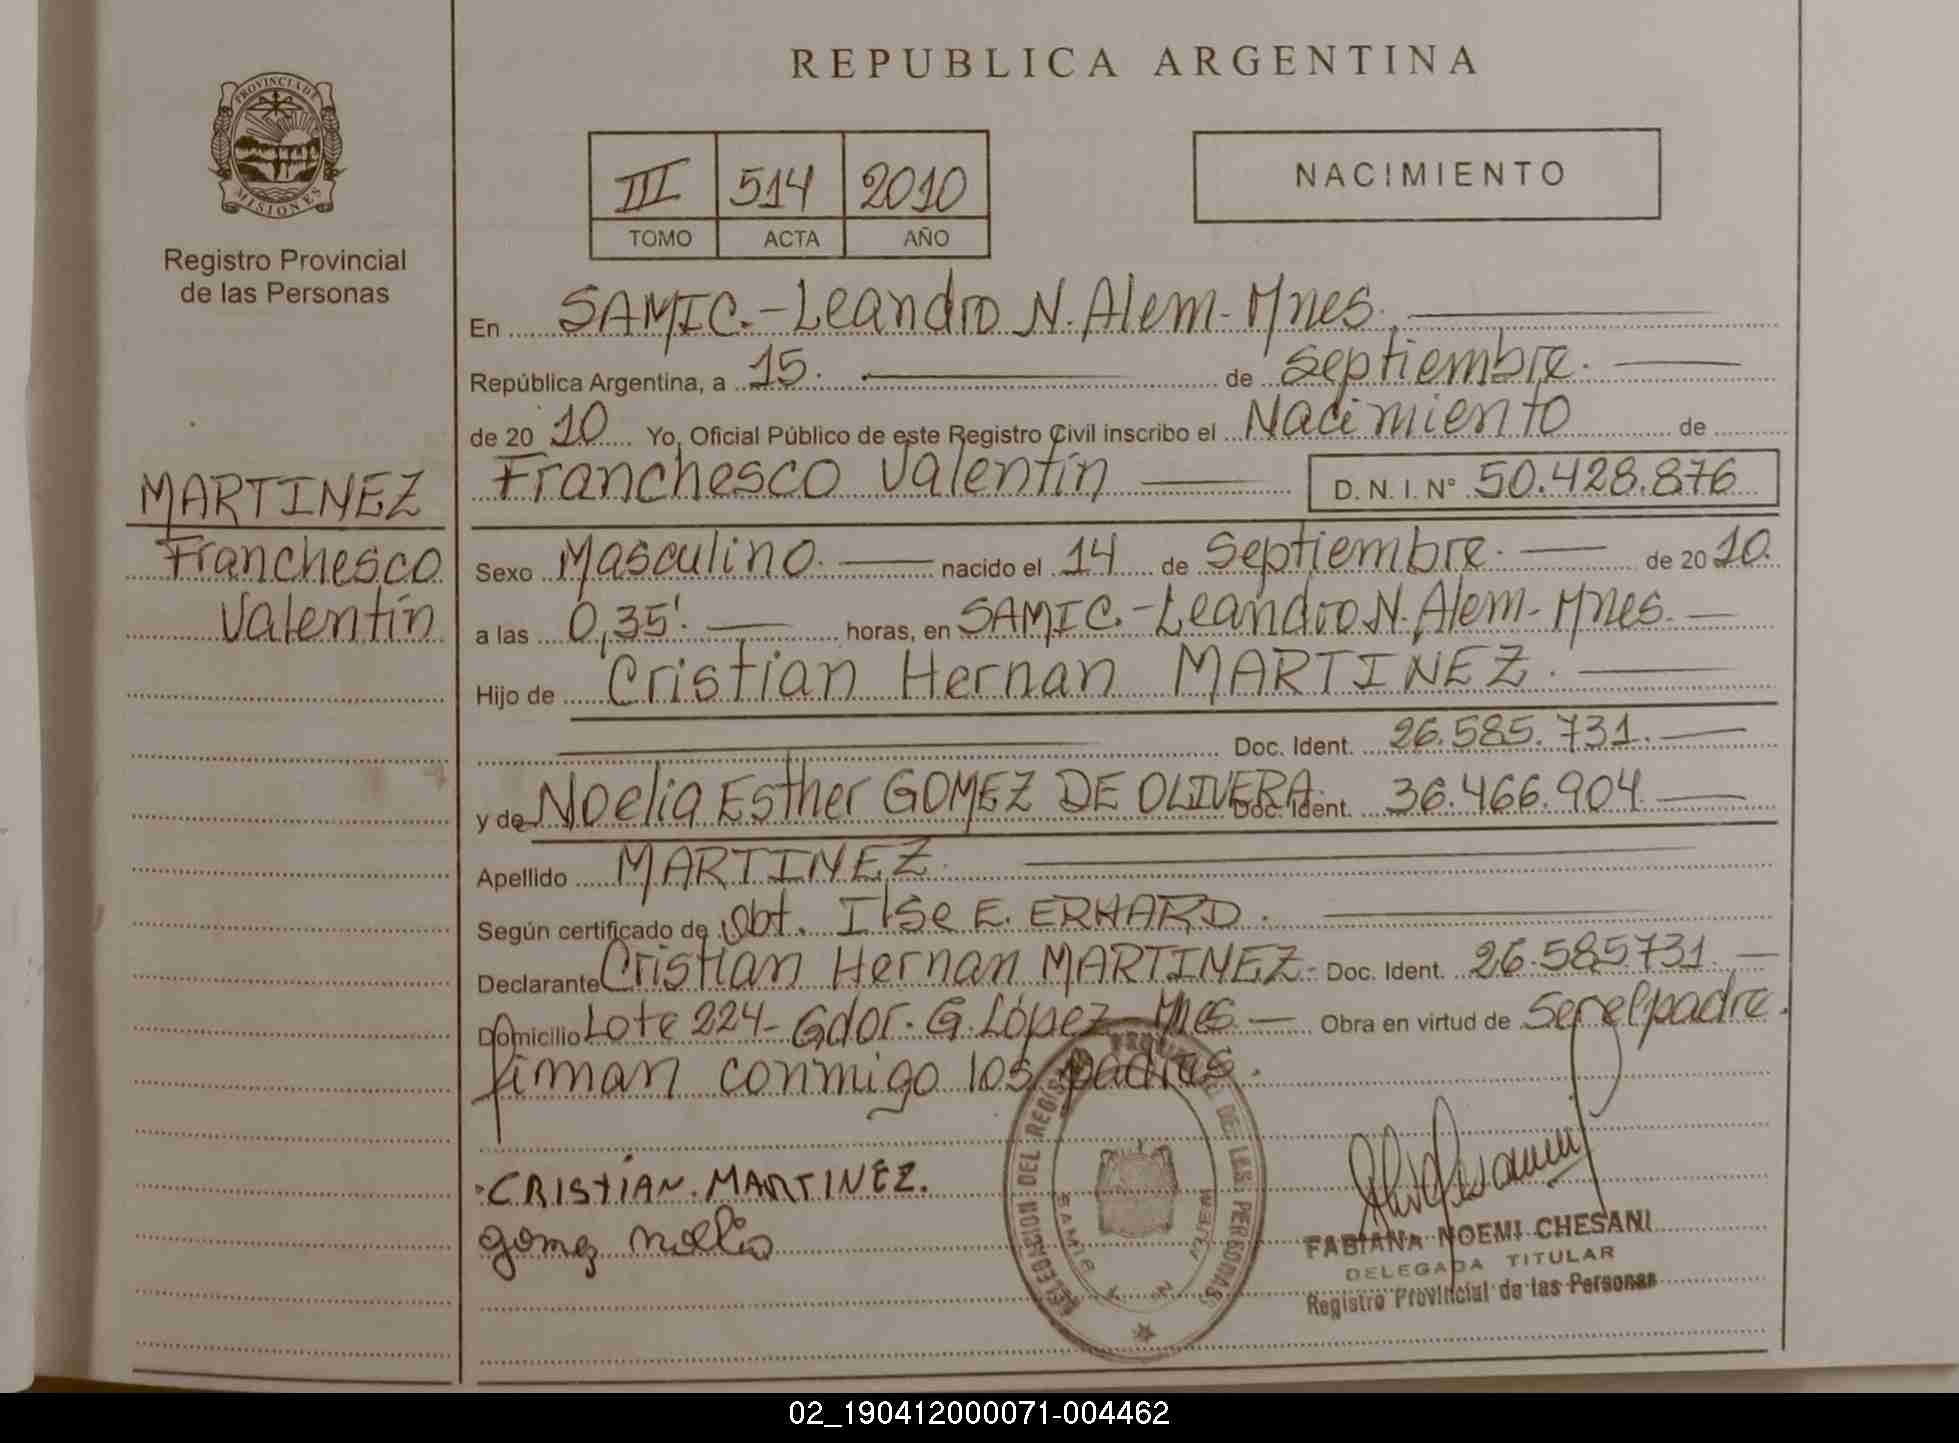 REPUBLICA ARGENTINA
PROVINCIA DE
MISIONES
Registro Provincial
de las Personas
III 514 2010
TOMO ACTA AÑO
NACIMIENTO
En SAMIC.-Leandro N. Alem-Mnes.
República Argentina, a 15. de septiembre.
de 20 10 Yo, Oficial Público de este Registro Civil inscribo el Nacimiento de
Franchesco Valentín D. N. I. N° 50.428.876
MARTINEZ
Franchesco
Valentín
Sexo Masculino. nacido el 14 de Septiembre. de 20 10.
a las 0,35'. horas, en SAMIC.-Leandro N. Alem-Mnes.
Hijo de Cristian Hernan MARTINEZ.
Doc. Ident. 26.585.731.
y de Noelia Esther GOMEZ DE OLIVERA. Doc. Ident. 36.466.904
Apellido MARTINEZ.
Según certificado de Obt. Ilse E. ERHARD.
Declarante Cristian Hernan MARTINEZ- Doc. Ident. 26.585731.
Domicilio Lote 224- Gdor. G. López Mnes. Obra en virtud de ser el padre.
firman conmigo los padres.
CRISTIAN. MARTINEZ.
gomez noelia
DELEGACION DEL REGISTRO DE LAS PERSONAS
SAMIC
FABIANA NOEMI CHESANI
DELEGADA TITULAR
Registro Provincial de las Personas
02_190412000071-004462